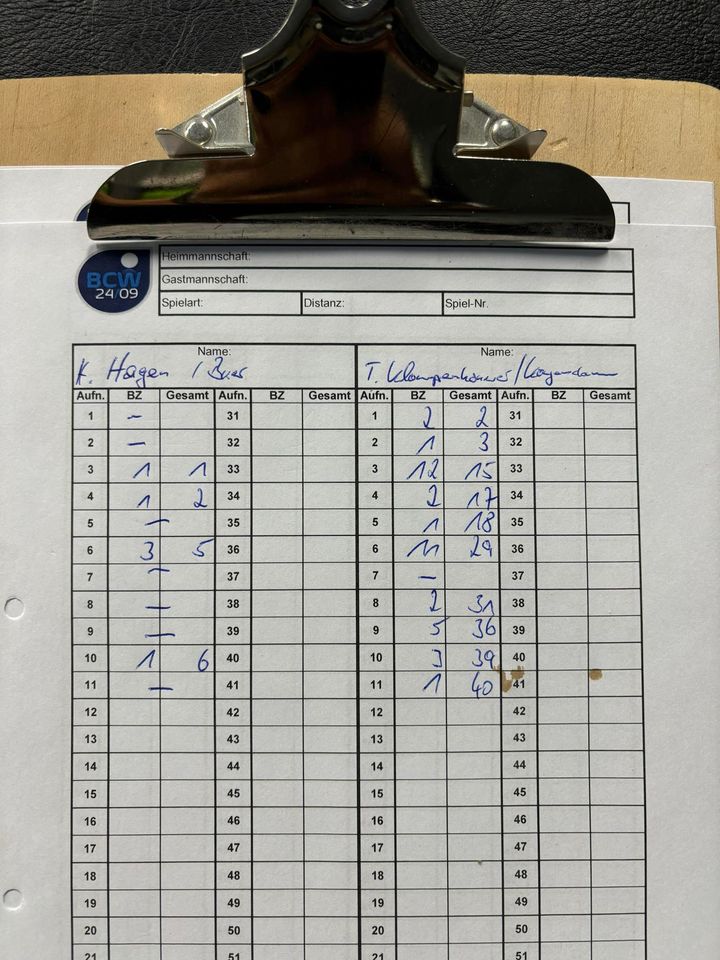 BCW
24/09
Heimmannschaft:
Gastmannschaft:
Spielart: Distanz: Spiel-Nr.
Name: Name:
K. Hagen / Buer T.
Aufn. BZ Gesamt Aufn. BZ Gesamt Aufn. BZ Gesamt Aufn. BZ Gesamt
1 – 31 1 2 2 31
2 – 32 2 1 3 32
3 1 1 33 3 12 15 33
4 1 2 34 4 2 17 34
5 – 35 5 1 18 35
6 3 5 36 6 11 29 36
7 – 37 7 – 37
8 – 38 8 2 31 38
9 – 39 9 5 36 39
10 1 6 40 10 3 39 40
11 – 41 11 1 40 41
12 42 12 42
13 43 13 43
14 44 14 44
15 45 15 45
16 46 16 46
17 47 17 47
18 48 18 48
19 49 19 49
20 50 20 50
21 51 21 51